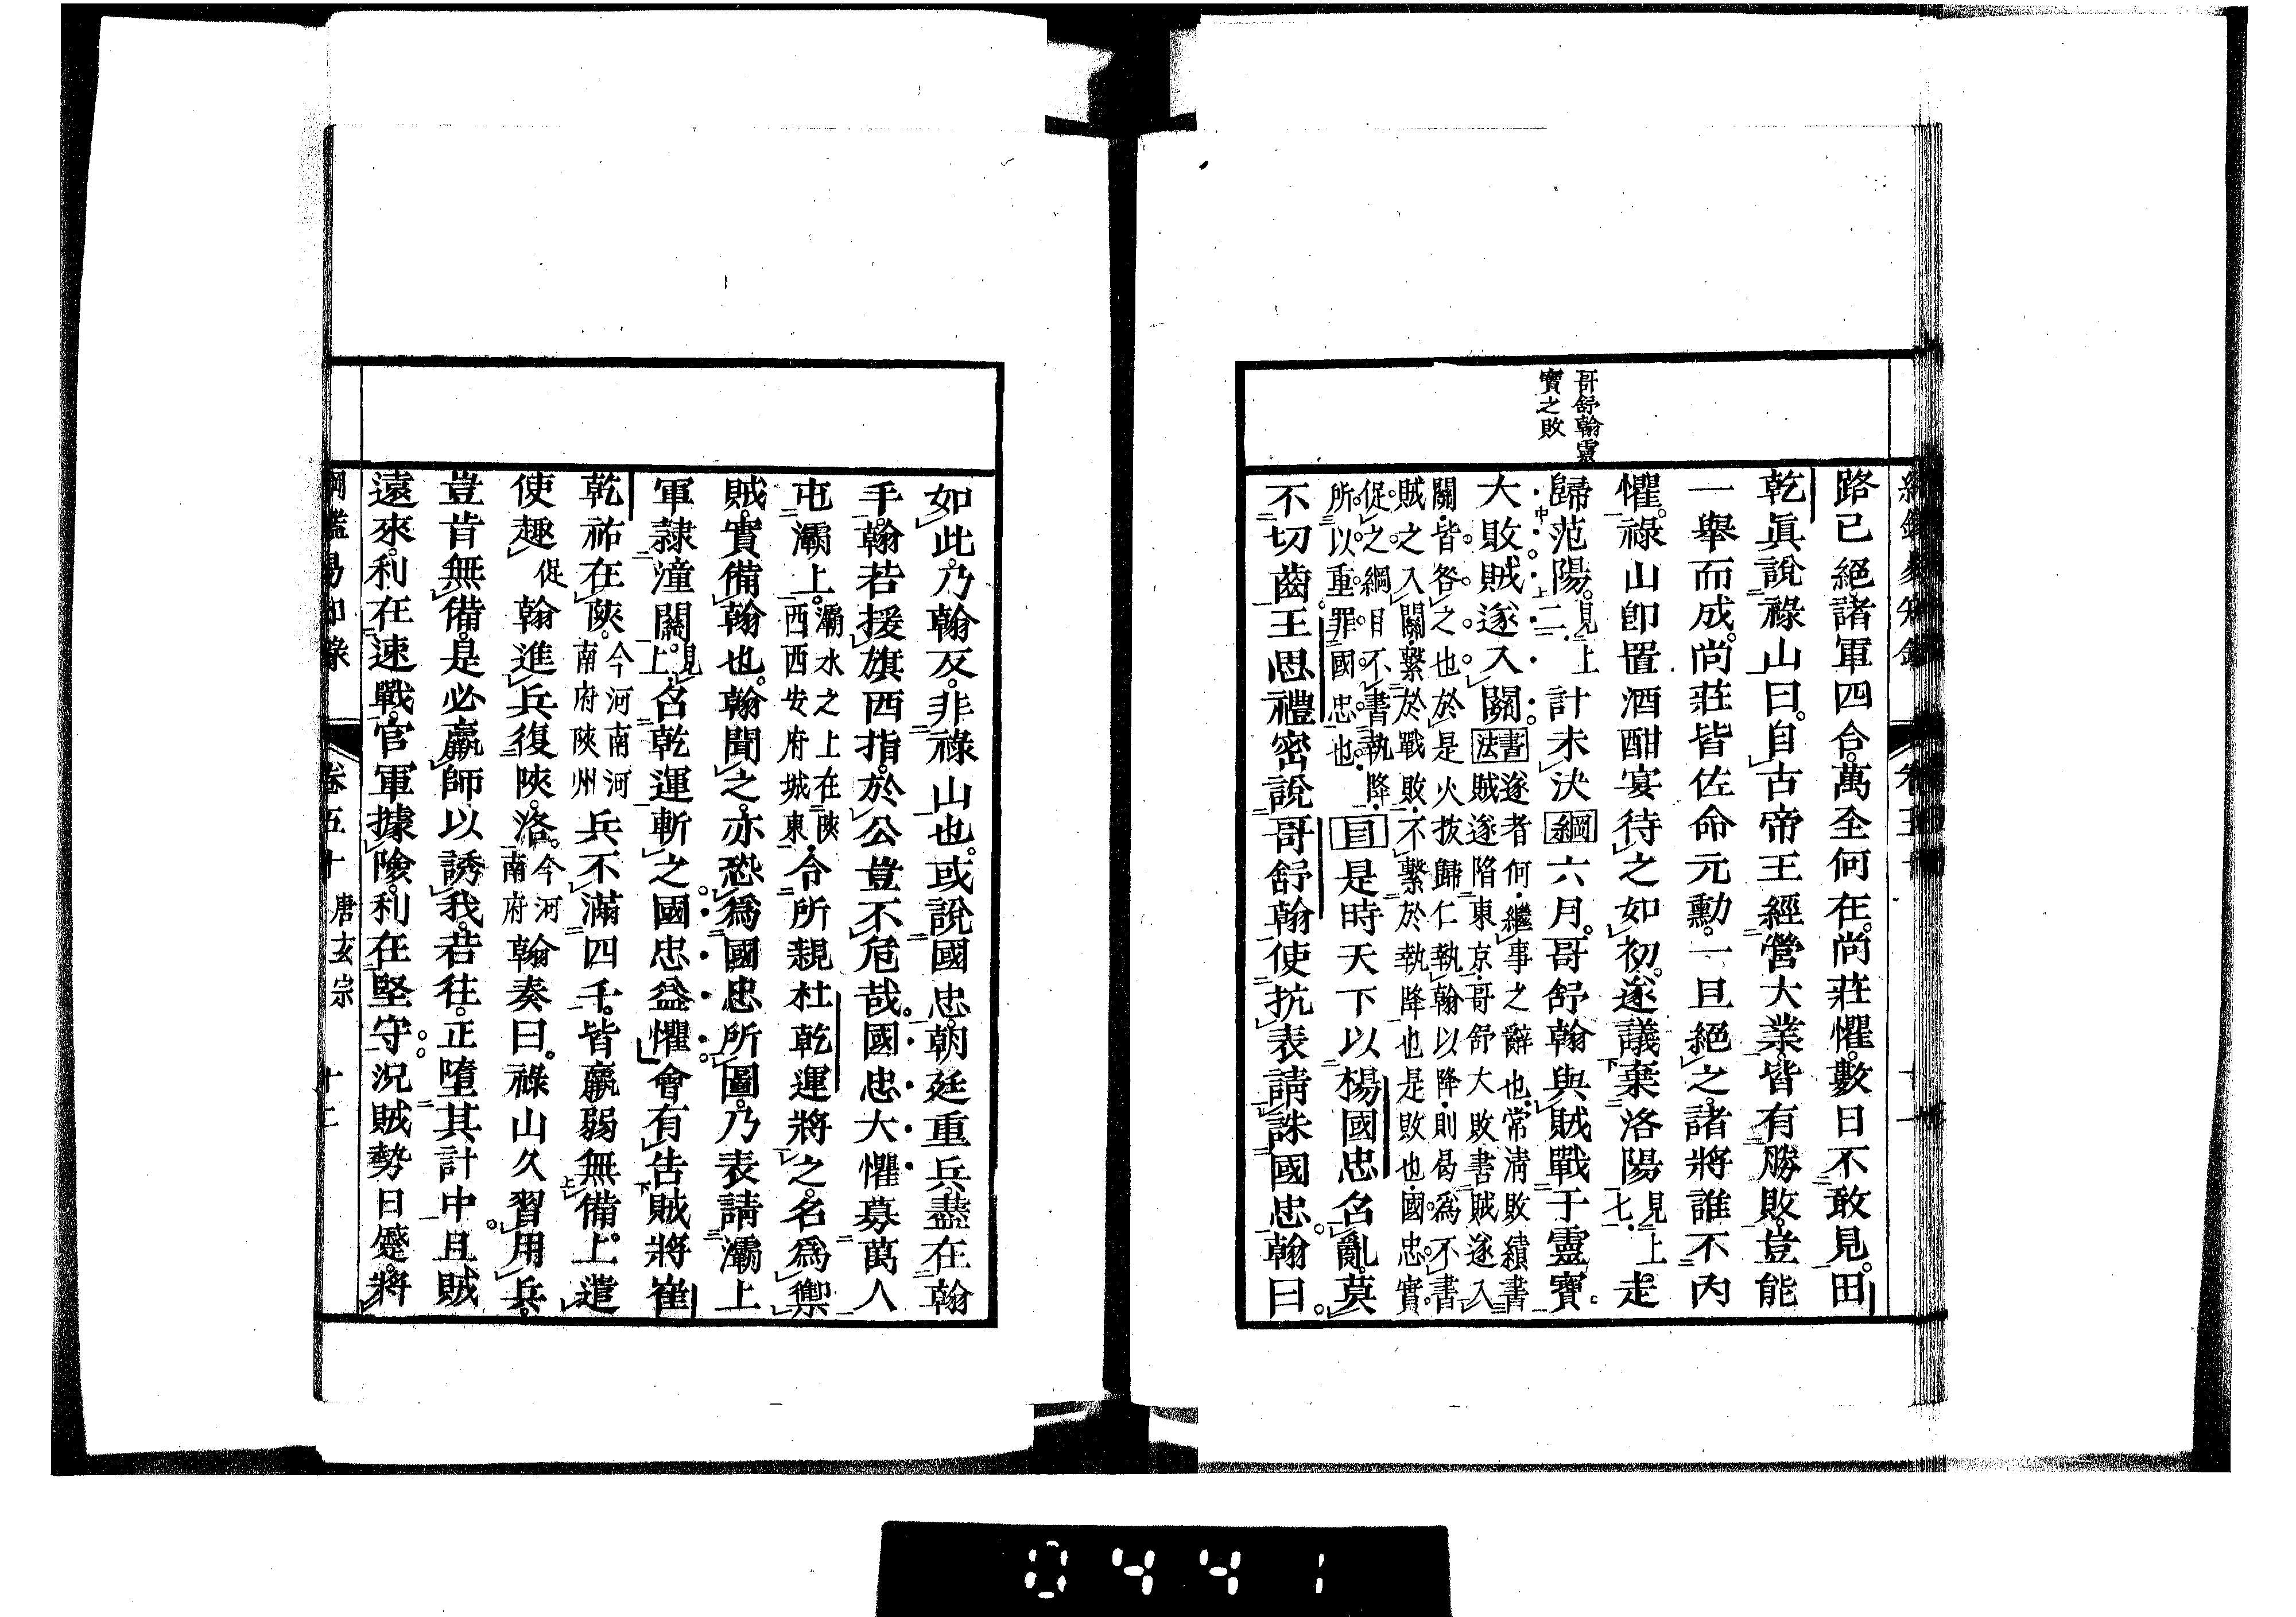 哥舒翰靈
寶之敗
路已絕諸軍四合萬全何在尚莊懼數日不敢見田
乾眞說祿山曰自古帝王經營大業皆有勝敗豈能
一舉而成尚莊皆佐命元勳一旦絕之諸將誰不內
懼祿山卽置酒酣宴待之如初遂議棄洛陽見上七走
歸范陽見上二計未決綱六月哥舒翰與賊戰于靈寶
大敗賊遂入關書法遂者何繼事之辭也常淸敗績書賊遂陷東京哥舒大敗書賊遂入
關皆咎之也於是火拔歸仁執翰以降則曷爲不書賊之入關繫於戰敗不繫於執降也是敗也國忠實
促之綱目不書執降所以重罪國忠也目是時天下以楊國忠召亂莫
不切齒王思禮密說哥舒翰使抗表請誅國忠翰曰
如此乃翰反非祿山也或說國忠朝廷重兵盡在翰
手翰若援旗西指於公豈不危哉國忠大懼募萬人
屯灞上灞水之上在陝西西安府城東令所親杜乾運將之名爲禦
賊實備翰也翰聞之亦恐爲國忠所圖乃表請灞上
軍隷潼關見上召乾運斬之國忠益懼會有告賊將崔
乾祐在陝今河南河南府陝州兵不滿四千皆羸弱無備上遣
使趣促翰進兵復陝洛今河南府翰奏曰祿山久習用兵
豈肯無備是必羸師以誘我若往正墮其計中且賊
遠來利在速戰官軍據險利在堅守況賊勢日蹙將
卷五十 唐玄宗 十二
0441